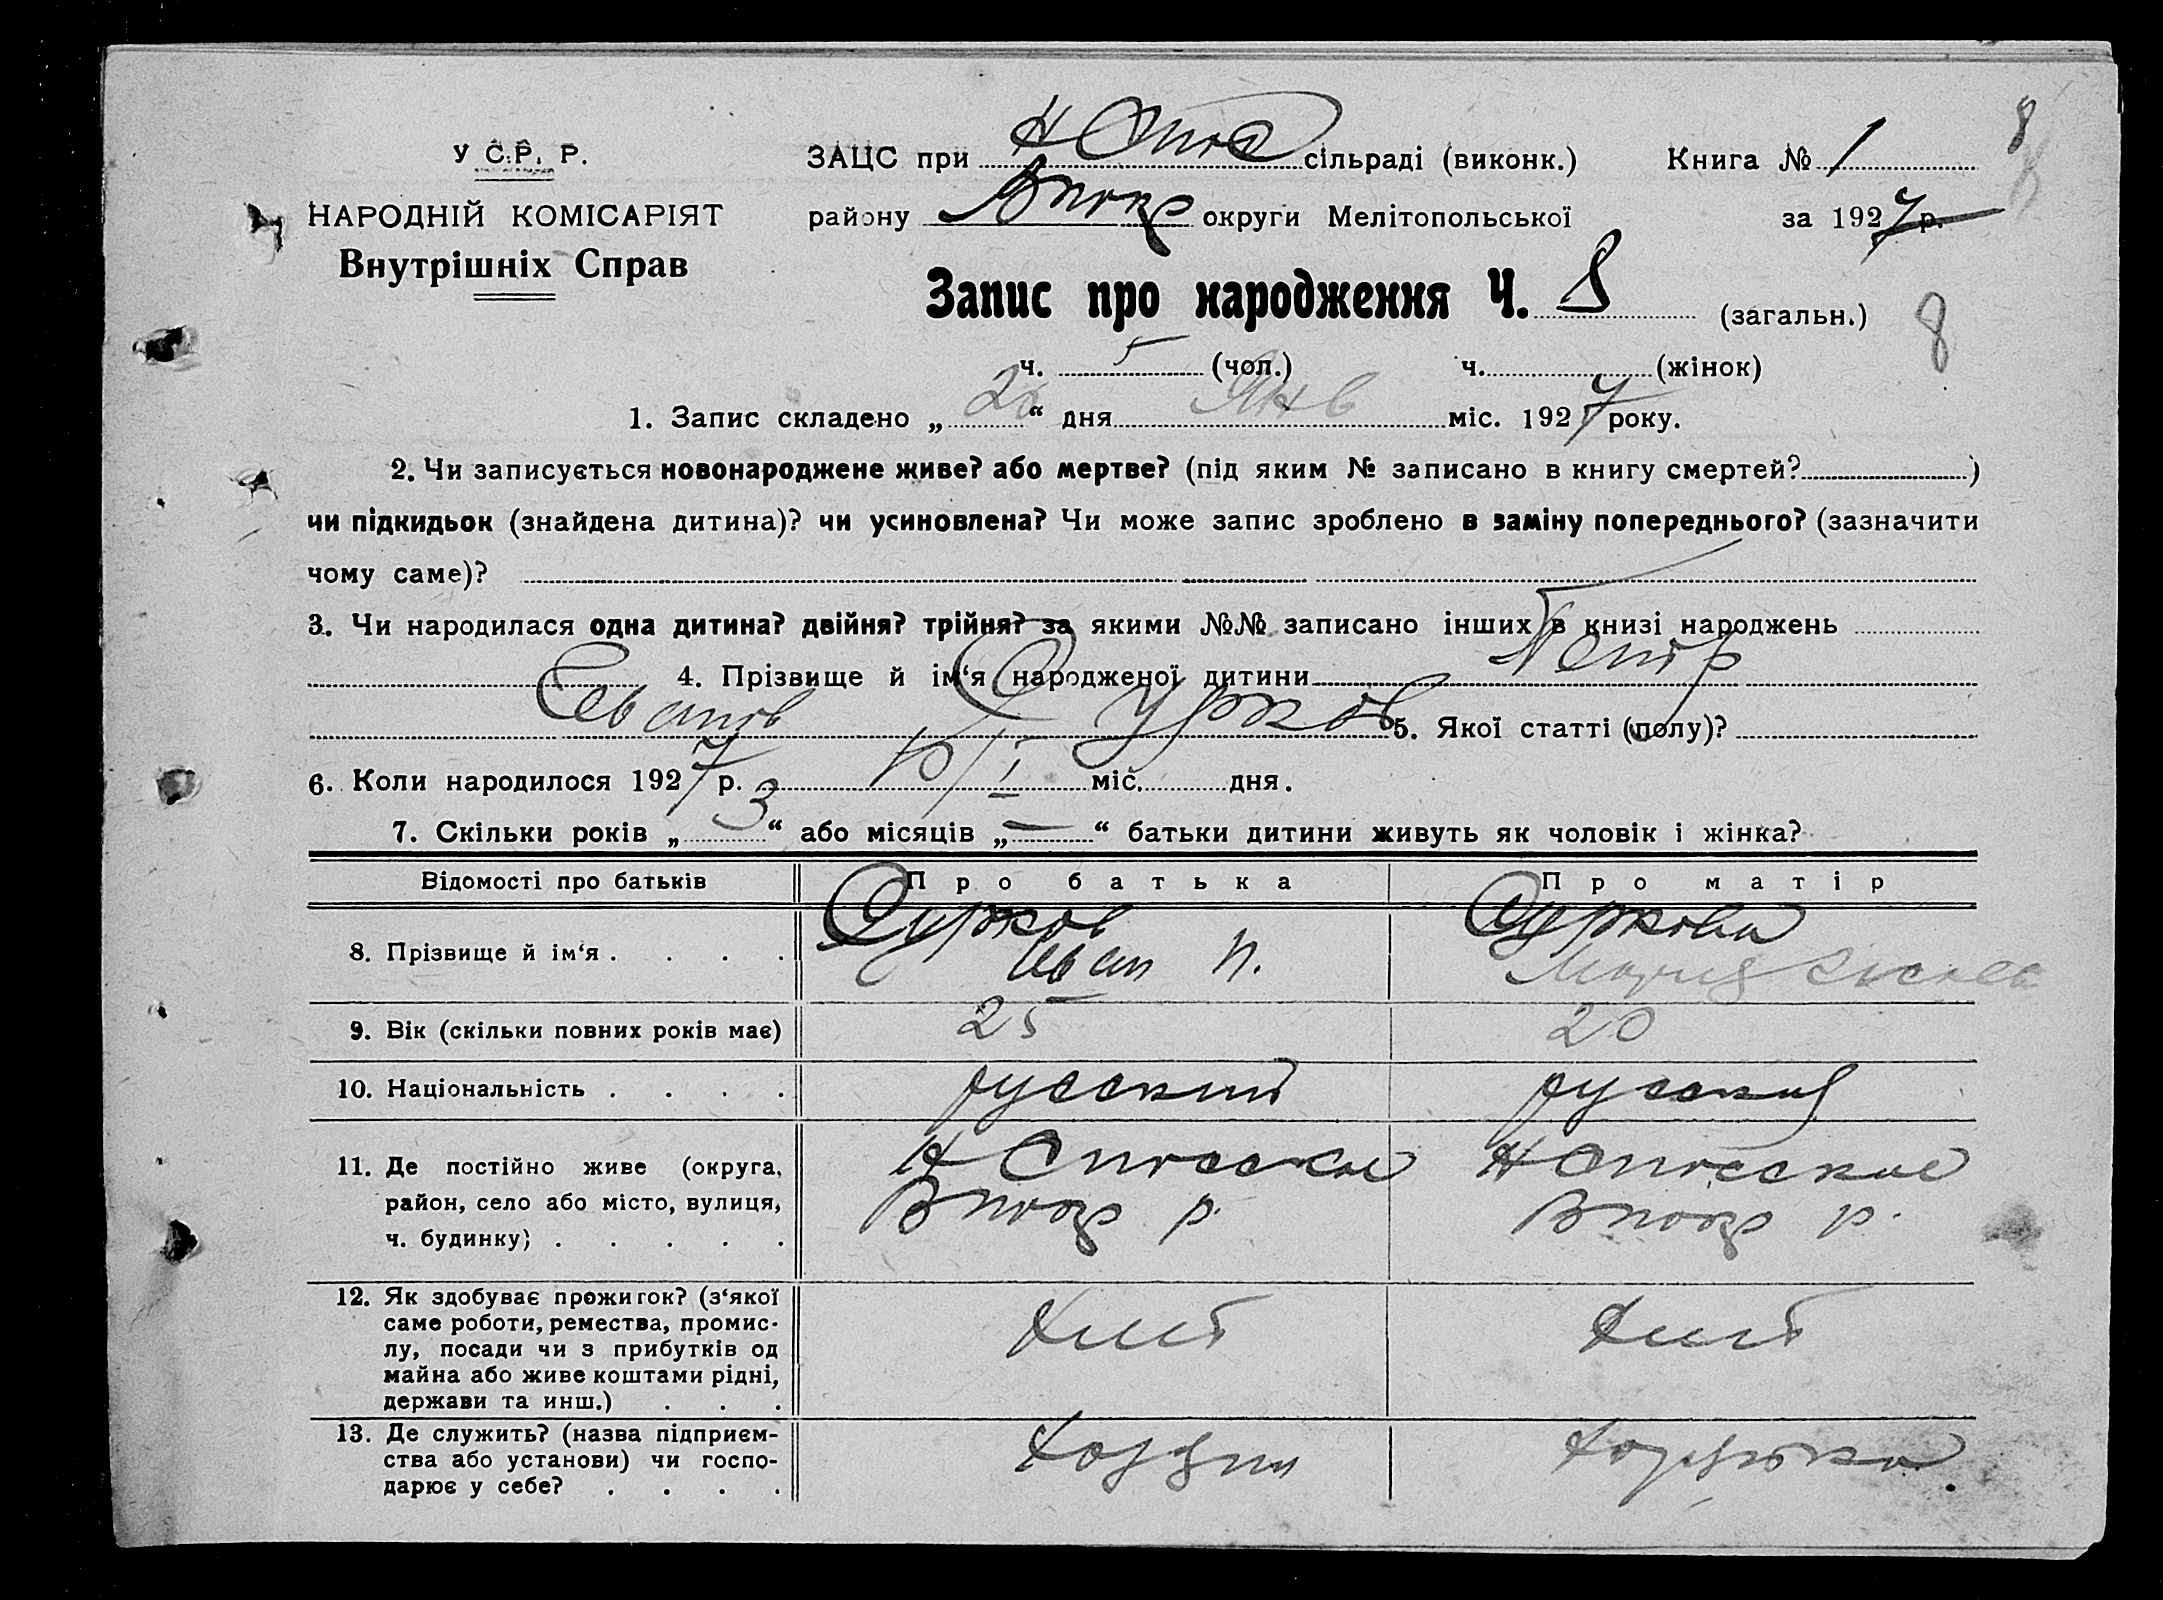 8
У С.Р. Р. ЗАЦС при Н Спас сільраді (виконк.) Книга № 1
НАРОДНІЙ КОМІСАРІЯТ району В Покр округи Мелітопольської за 1927 р.
Внутрішніх Справ
Запис про народження Ч. 8 (загальн.) 8
ч. 5 (чол.) ч. (жінок)
1. Запис складено „ “ дня Янв міс. 1927 року.
2. Чи записується новонароджене живе? або мертве? (під яким № записано в книгу смертей? )
чи підкидьок (знайдена дитина)? чи усиновлена? Чи може запис зроблено в заміну попереднього? (зазначити
чому саме)?
3. Чи народилася одна дитина? двійня? трійня? за якими №№ записано інших в книзі народжень
4. Прізвище й ім‘я народженої дитини Петр
Сурков 5. Якої статті (полу)?
6. Коли народилося 1927 р. 10/I міс. дня.
7. Скільки років „ 3 “ або місяців „ — “ батьки дитини живуть як чоловік і жінка?
Відомості про батьків Про батька Про матір
8. Прізвище й ім‘я . . . . Сурков Суркова
Иван П. Мария
9. Вік (скільки повних років має) 25 20
10. Національність . . . . русский русская
11. Де постійно живе (округа, Н Спасское Н Спасское
район, село або місто, вулиця, В Покр р. В Покр р.
ч. будинку) . . . . .
12. Як здобуває прожиток? (з‘якої
саме роботи, ремества, промис-
лу, посади чи з прибутків од Хлеб Хлеб
майна або живе коштами рідні,
держави та инш.) . . .
13. Де служить? (назва підприєм-
ства або установи) чи госпо- Хозяин Хозяйка
дарює у себе? . . . .